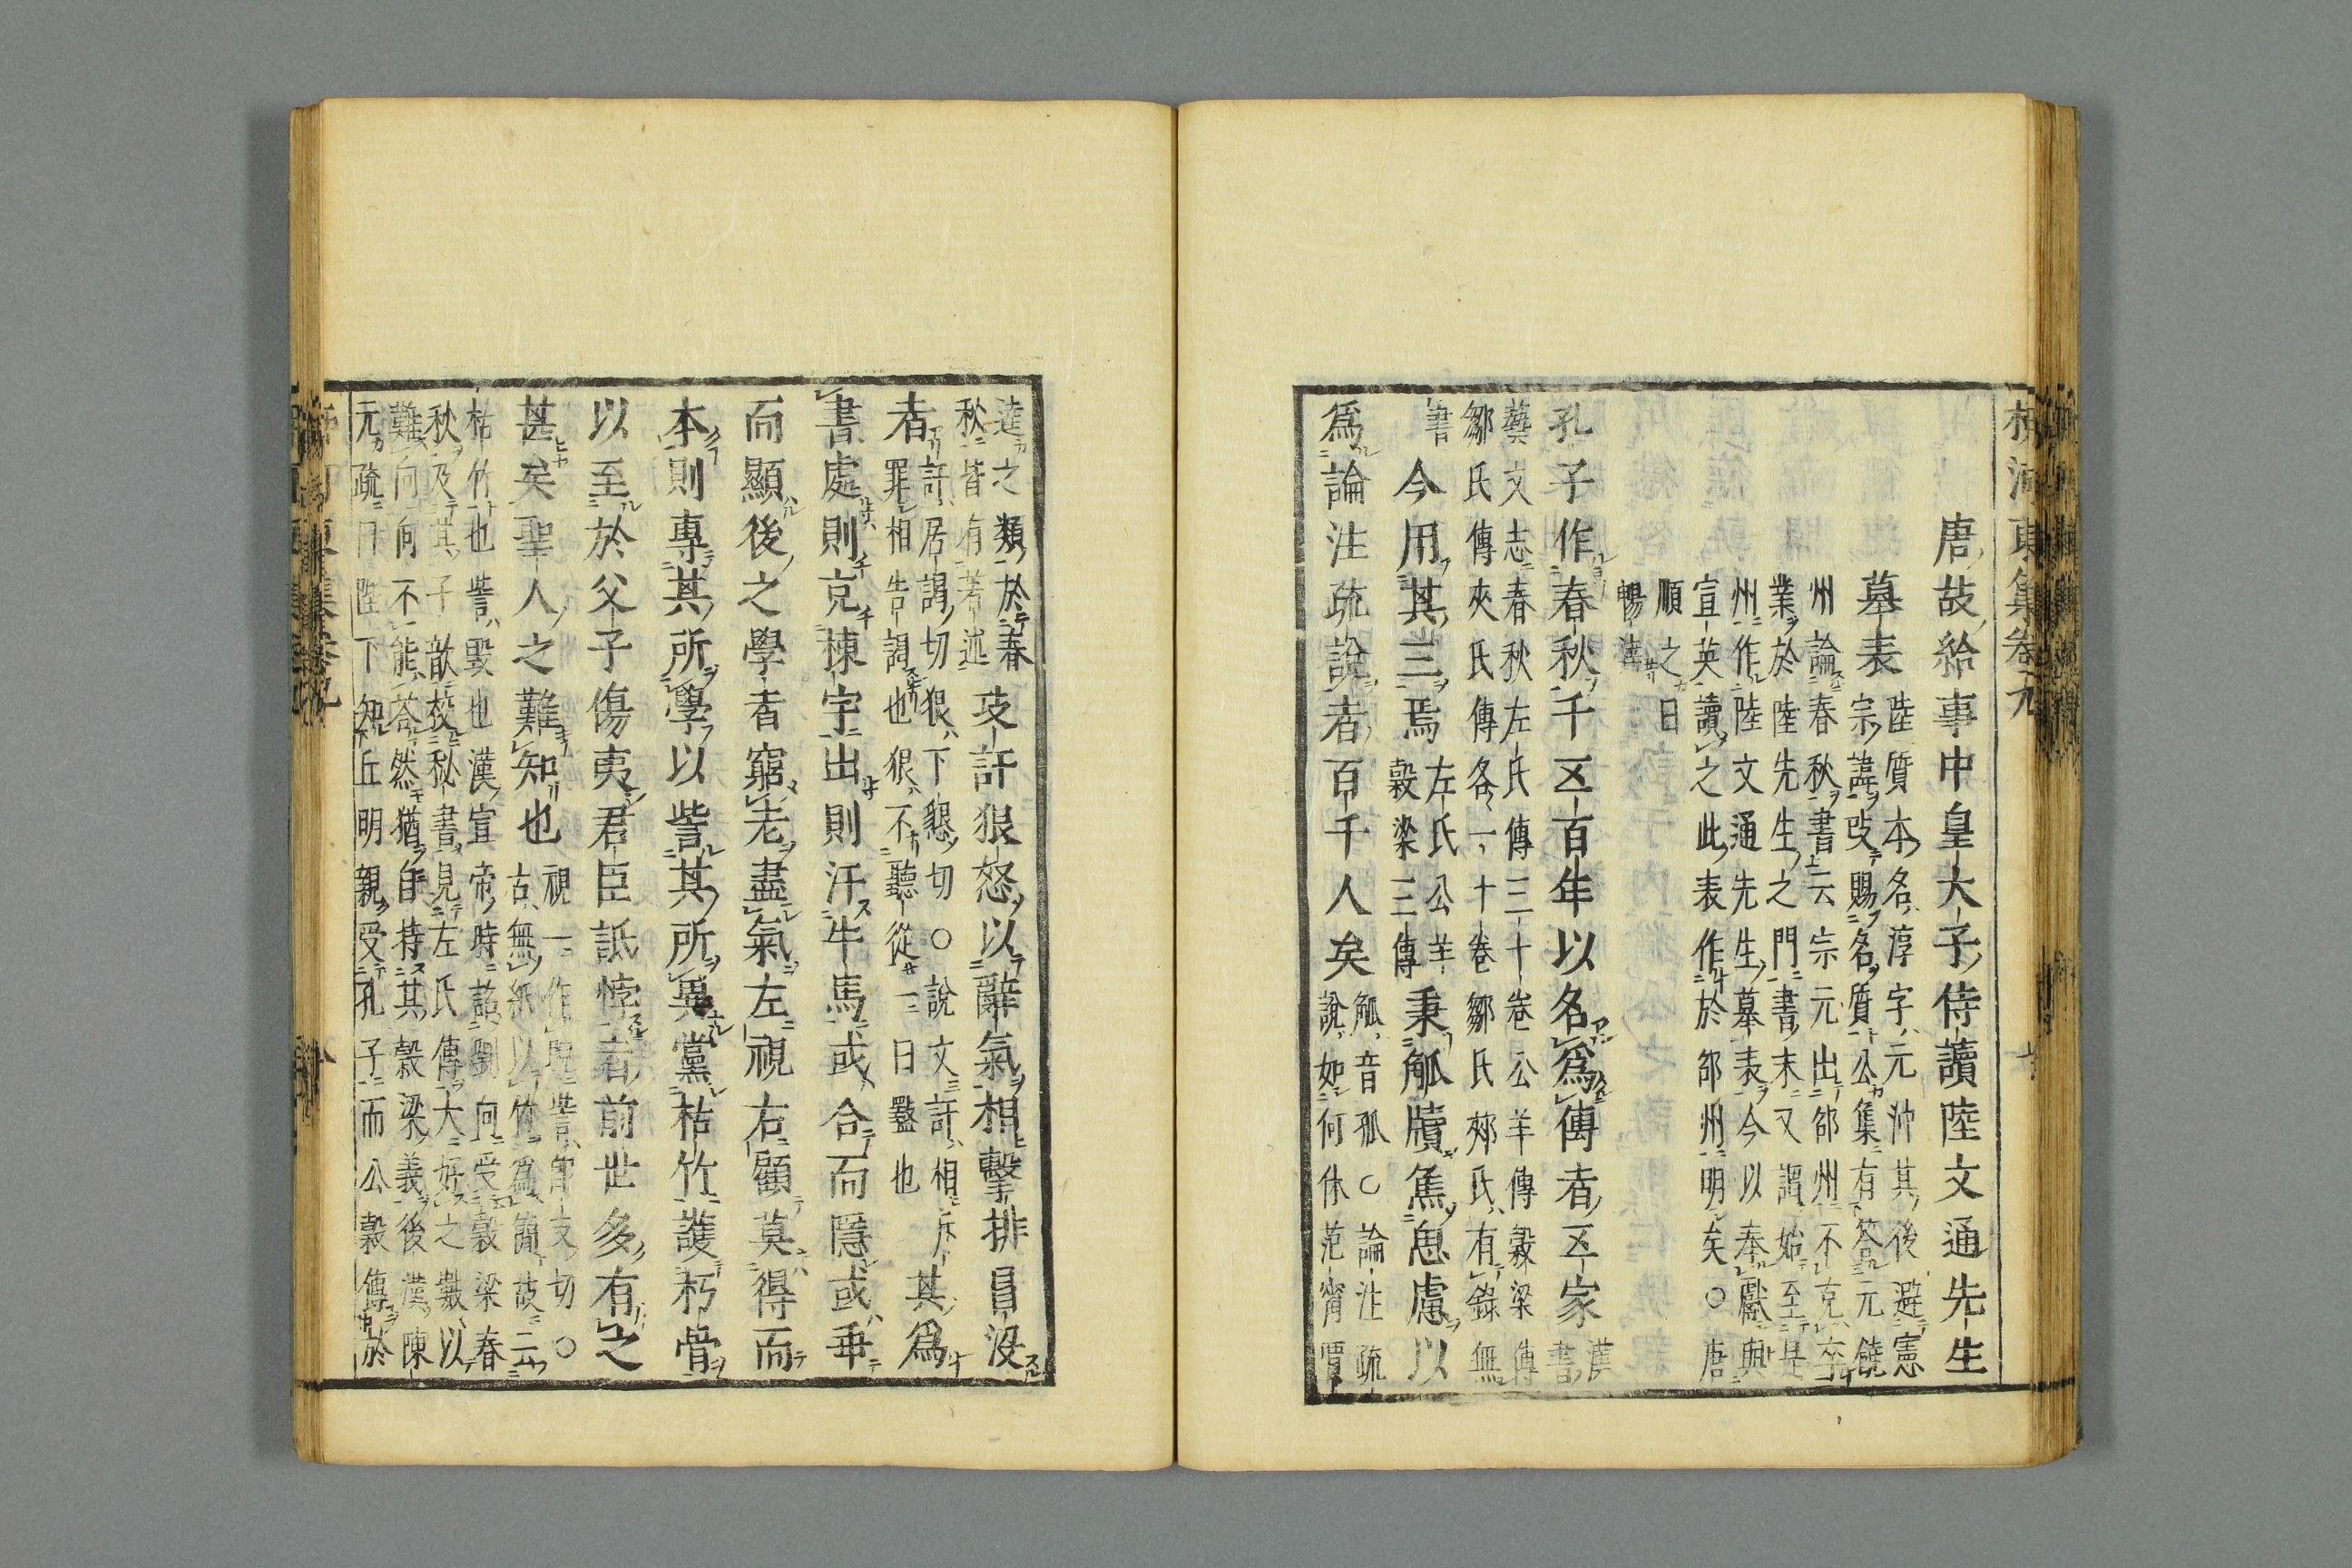 柳河東集卷九
唐故給事中皇大子侍讀陸文通先生
墓表
陸質本名淳字元沖其後避憲
宗諱改賜名質公集有答元饒
州論春秋書云宗元出邵州不克卒
業於陸先生之門書末又謂始至是
州作陸文通先生墓表今以奉獻與
宣英讀之此表作於邵州明矣○唐
順之曰
暢
孔子作春秋千五百年以名爲傳者五家
漢
書
藝文志春秋左氏傳三十卷公羊傳穀梁傳
鄒氏傳夾氏傳各一十卷鄒氏郟氏有錄無
書
今用其三焉
左氏公羊
穀梁三傳
秉觚牘焦思慮以
爲論注疏說者百千人矣
觚音孤○論注疏
說如何休范甯賈
逵之類於春
秋皆有著述
攻訐狠怒以辭氣相擊排冐沒
者
訐居謁切狠下懇切○說文訐相斥
罪相告訐也狠不聽從一曰盭也
其爲
書處則充棟宇出則汗牛馬或合而隱或乖
而顯後之學者窮老盡氣左視右顧莫得而
本則專其所學以訾其所異黨枯竹護朽骨
以至於父子傷夷君臣詆悖者前世多有之
甚矣聖人之難知也
視一作
古無紙以竹爲簡故云
枯竹也訾毀也漢宣帝時詔劉向受穀梁春
秋及其子歆校秘書見左氏傳大好之數以
難向向不能答然猶自持其穀梁義後漢陳
元疏曰陛下知丘明親受孔子而公穀傳於